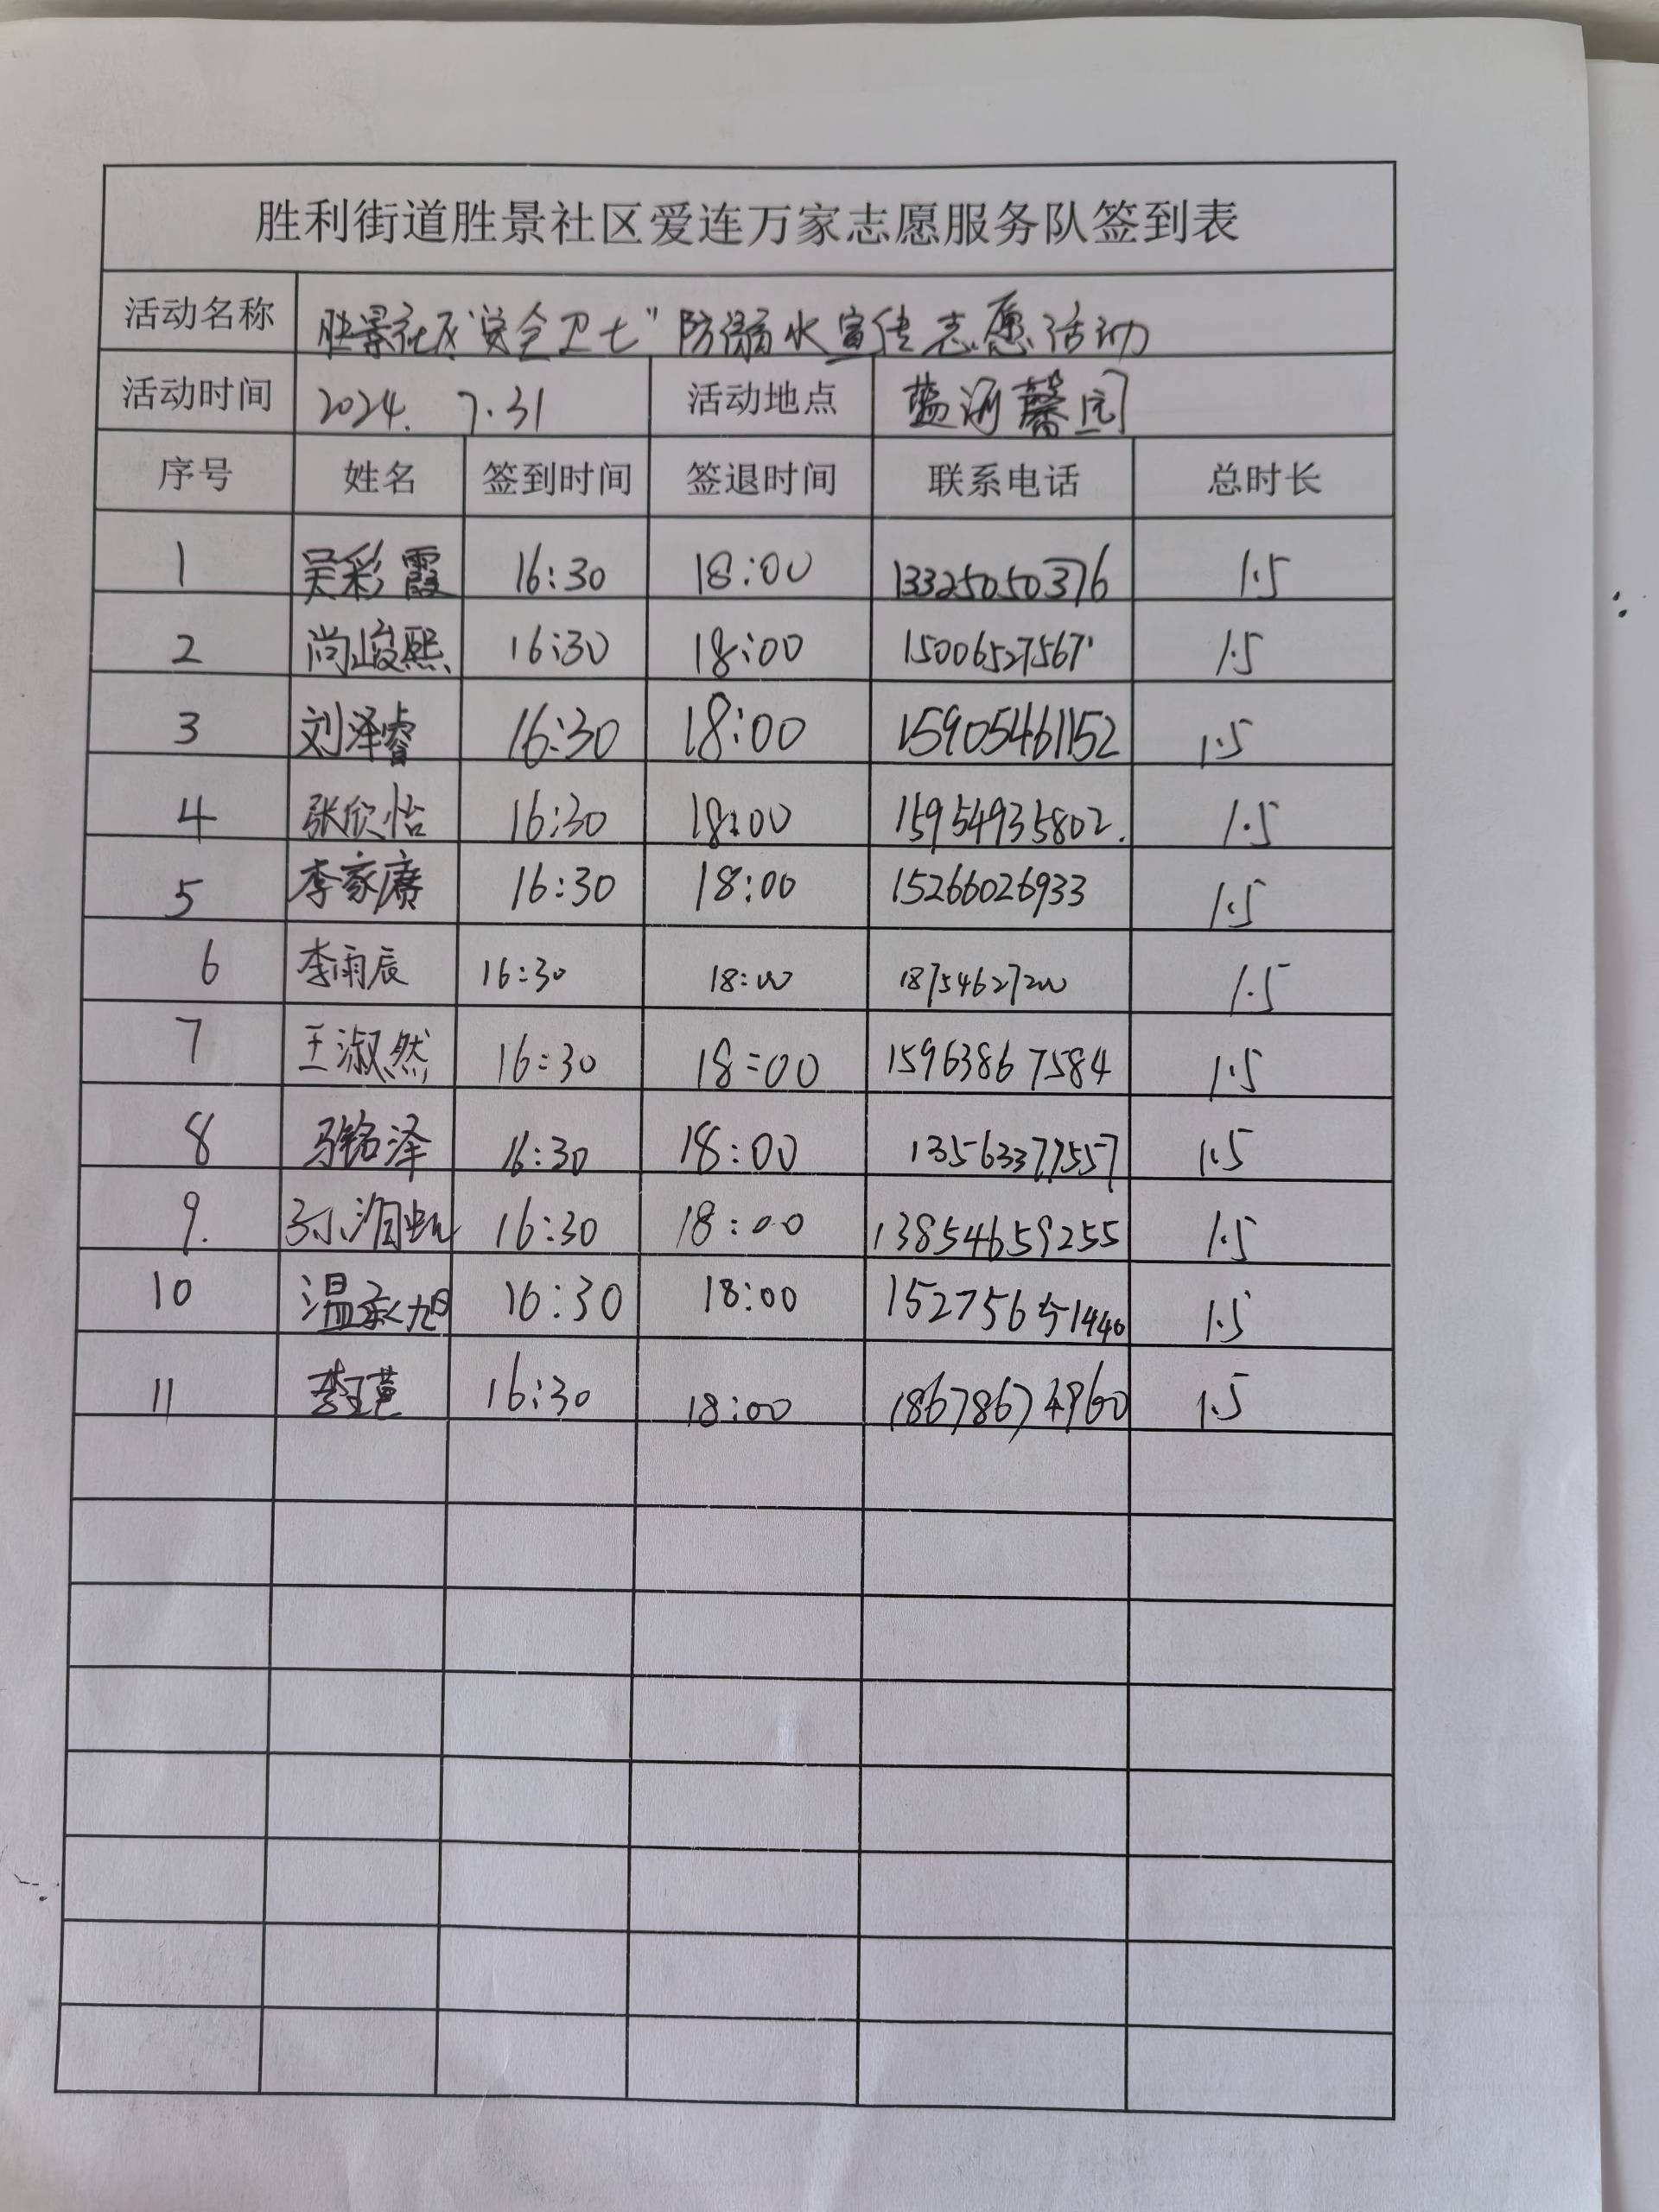 胜利街道胜景社区爱连万家志愿服务队签到表
活动名称 胜景社区"安全卫士"防溺水宣传志愿活动
活动时间 2024. 7.31 活动地点 蓝海馨园
序号 姓名 签到时间 签退时间 联系电话 总时长
1 吴彩霞 16:30 18:00 13325050376 1.5
2 尚峻熙 16:30 18:00 15006527567 1.5
3 刘泽睿 16:30 18:00 15905461152 1.5
4 张欣怡 16:30 18:00 15954935802. 1.5
5 李家赓 16:30 18:00 15266026933 1.5
6 李雨辰 16:30 18:00 18754627200 1.5
7 王淑然 16:30 18:00 15963867584 1.5
8 马铭泽 16:30 18:00 13563377557 1.5
9. 16:30 18:00 13854659255 1.5
10 16:30 18:00 1.5
11 16:30 18:00 18678674960 1.5